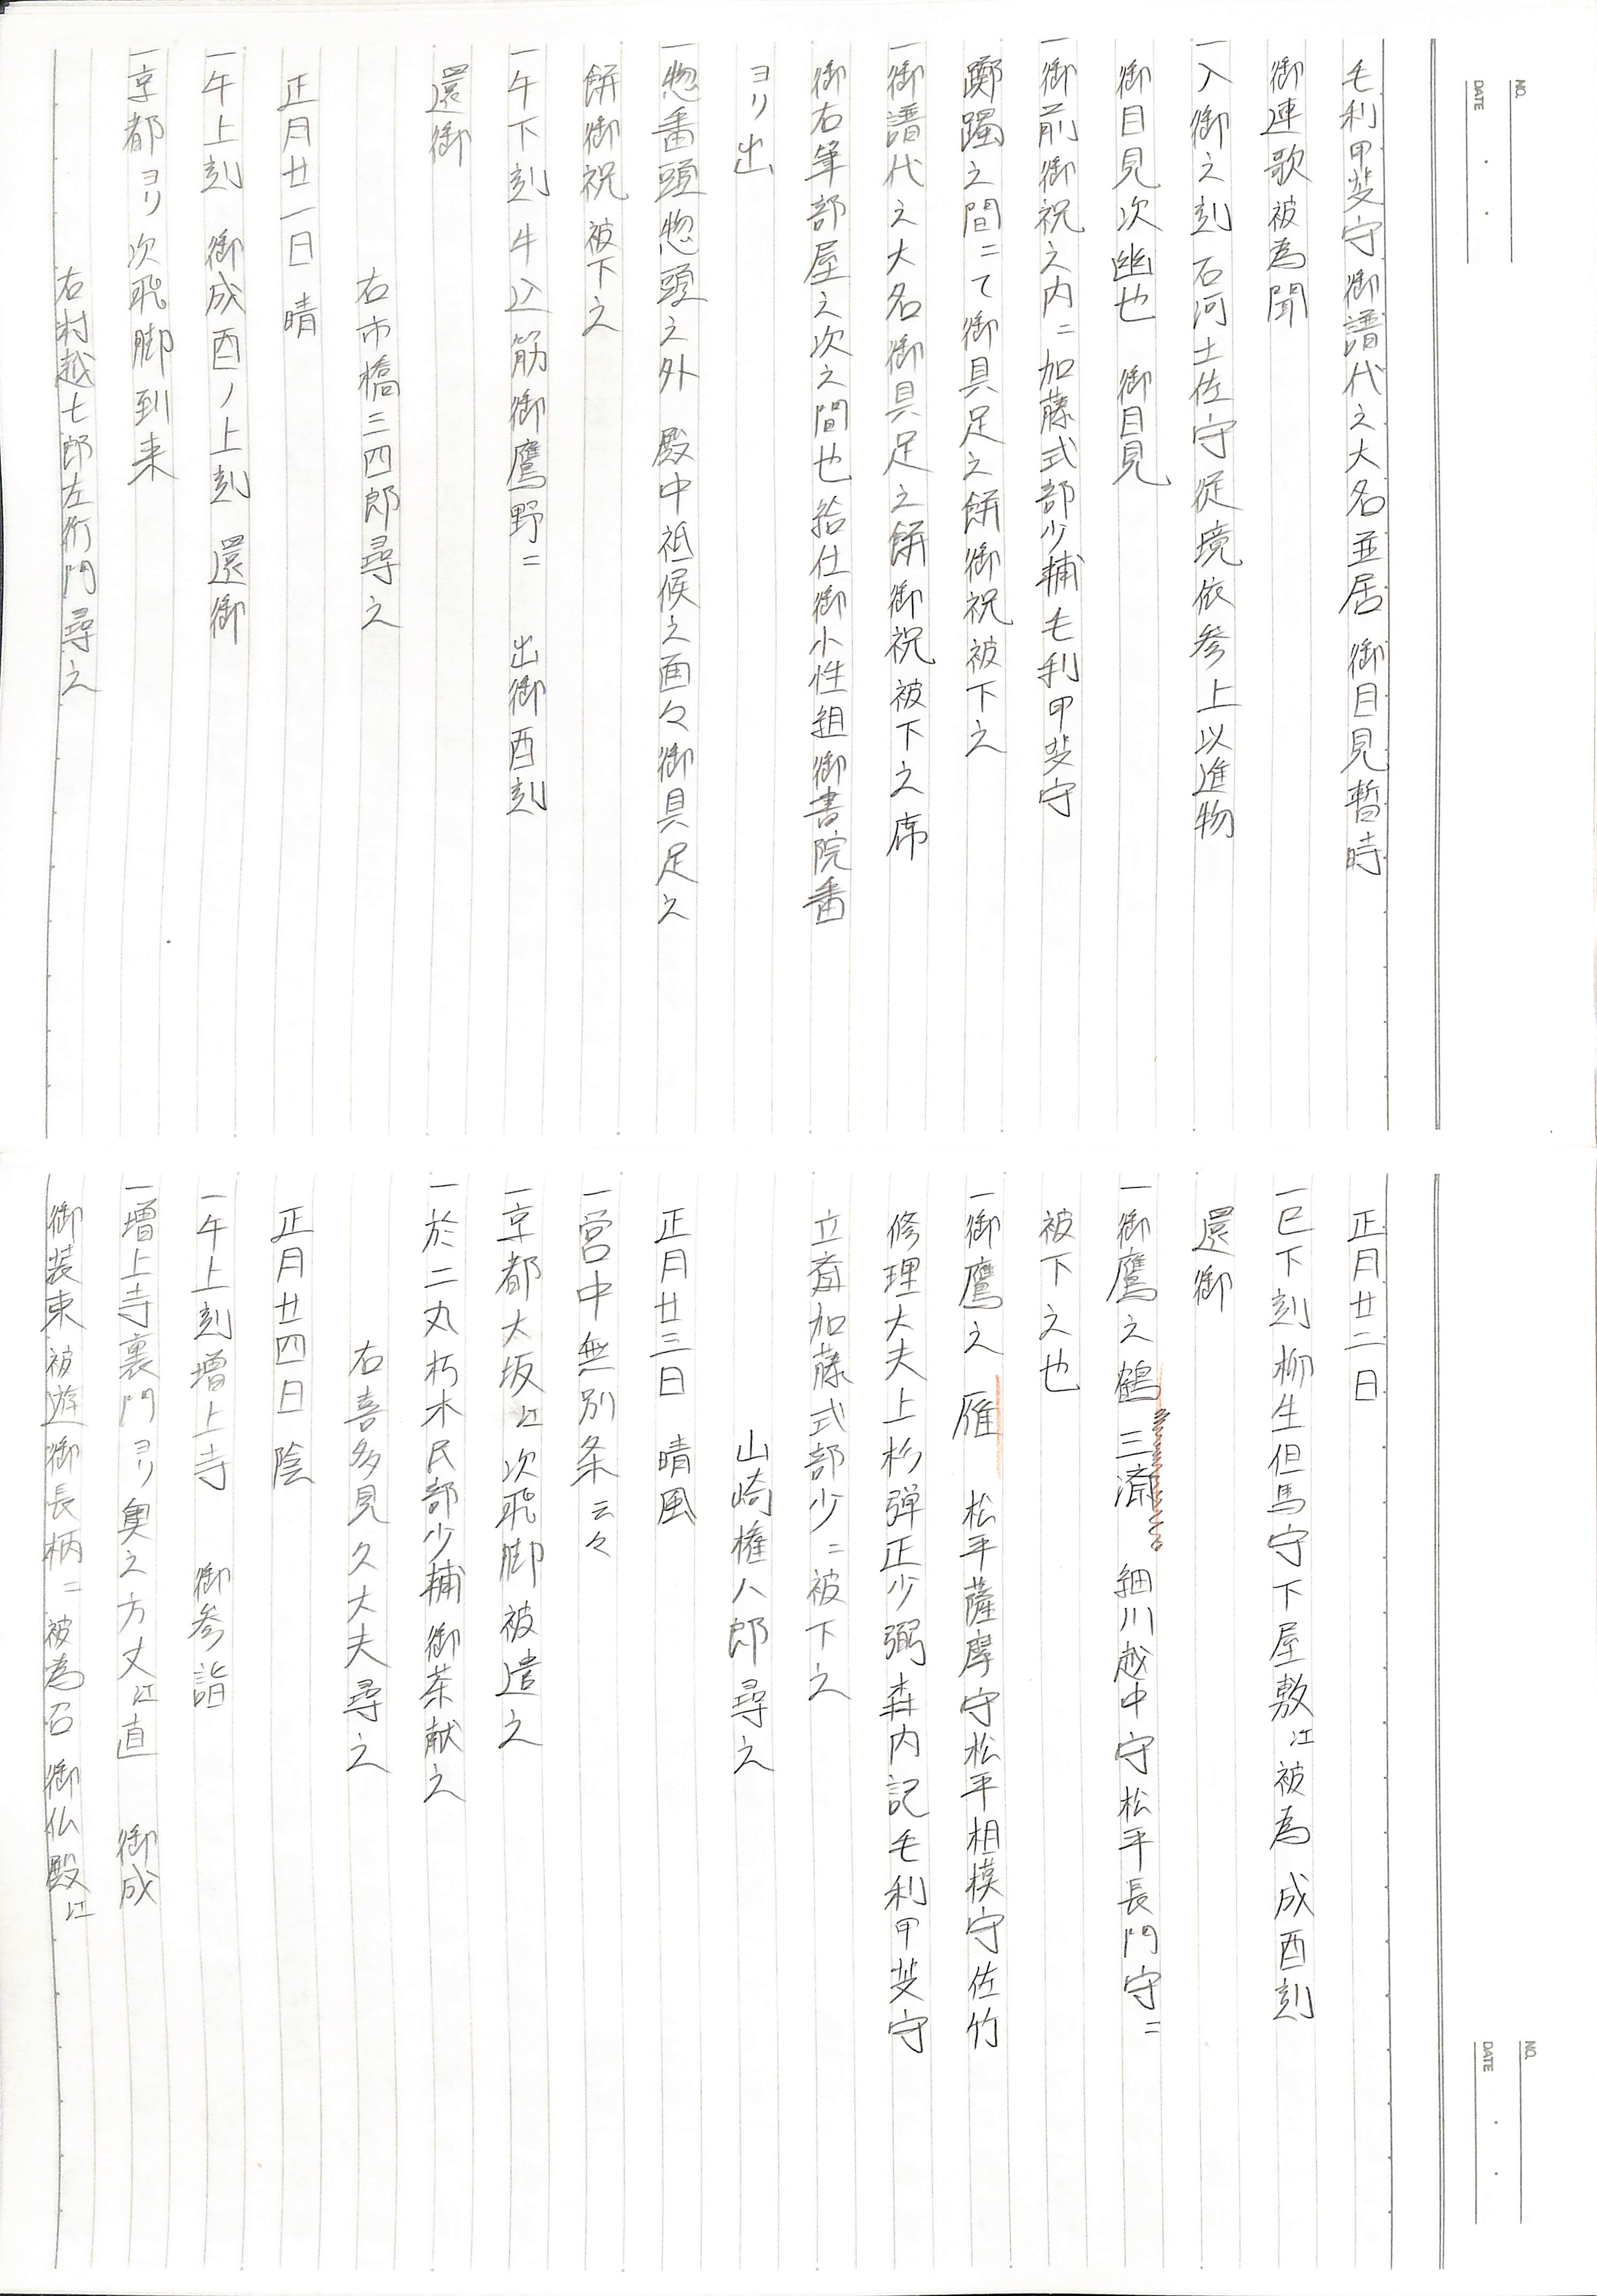 NO.
DATE
毛利甲斐守御譜代之大名並居 御目見暫時
御連歌被為聞
一入御之刻 石河土佐守従境依参上以進物
御目見次幽也 御目見
一御前御祝之内ニ加藤式部少輔毛利甲斐守
躑躅之間ニて御具足之餅御祝被下之
一御譜代之大名御具足之餅御祝被下之席
御右筆部屋之次之間也給仕御小性組御書院番
ヨリ出
一惣番頭惣頭之外 殿中祗候之面々御具足之
餅御祝被下之
一午下刻牛込筋御鷹野ニ 出御酉刻
還御
右市橋三四郎尋之
正月廿一日 晴
一午上刻 御成酉ノ上刻 還御
一京都ヨリ次飛脚到来
右村越七郎左衛門尋之
NO.
DATE
正月廿二日
一巳下刻柳生但馬守下屋敷江被為 成酉刻
還御
一御鷹之鶴 三斎 細川越中守松平長門守ニ
被下之也
一御鷹之 雁 松平薩摩守松平相模守佐竹
修理大夫上杉弾正少弼森内記毛利甲斐守
立斎加藤式部少ニ被下之
山崎権八郎尋之
正月廿三日 晴風
一営中無別条云々
一京都大坂江次飛脚被遣之
一於二丸朽木民部少輔御茶献之
右喜多見久大夫尋之
正月廿四日 陰
一午上刻増上寺 御参詣
一増上寺裏門ヨリ奥之方丈江直 御成
御装束被遊御長柄ニ被為召御仏殿江